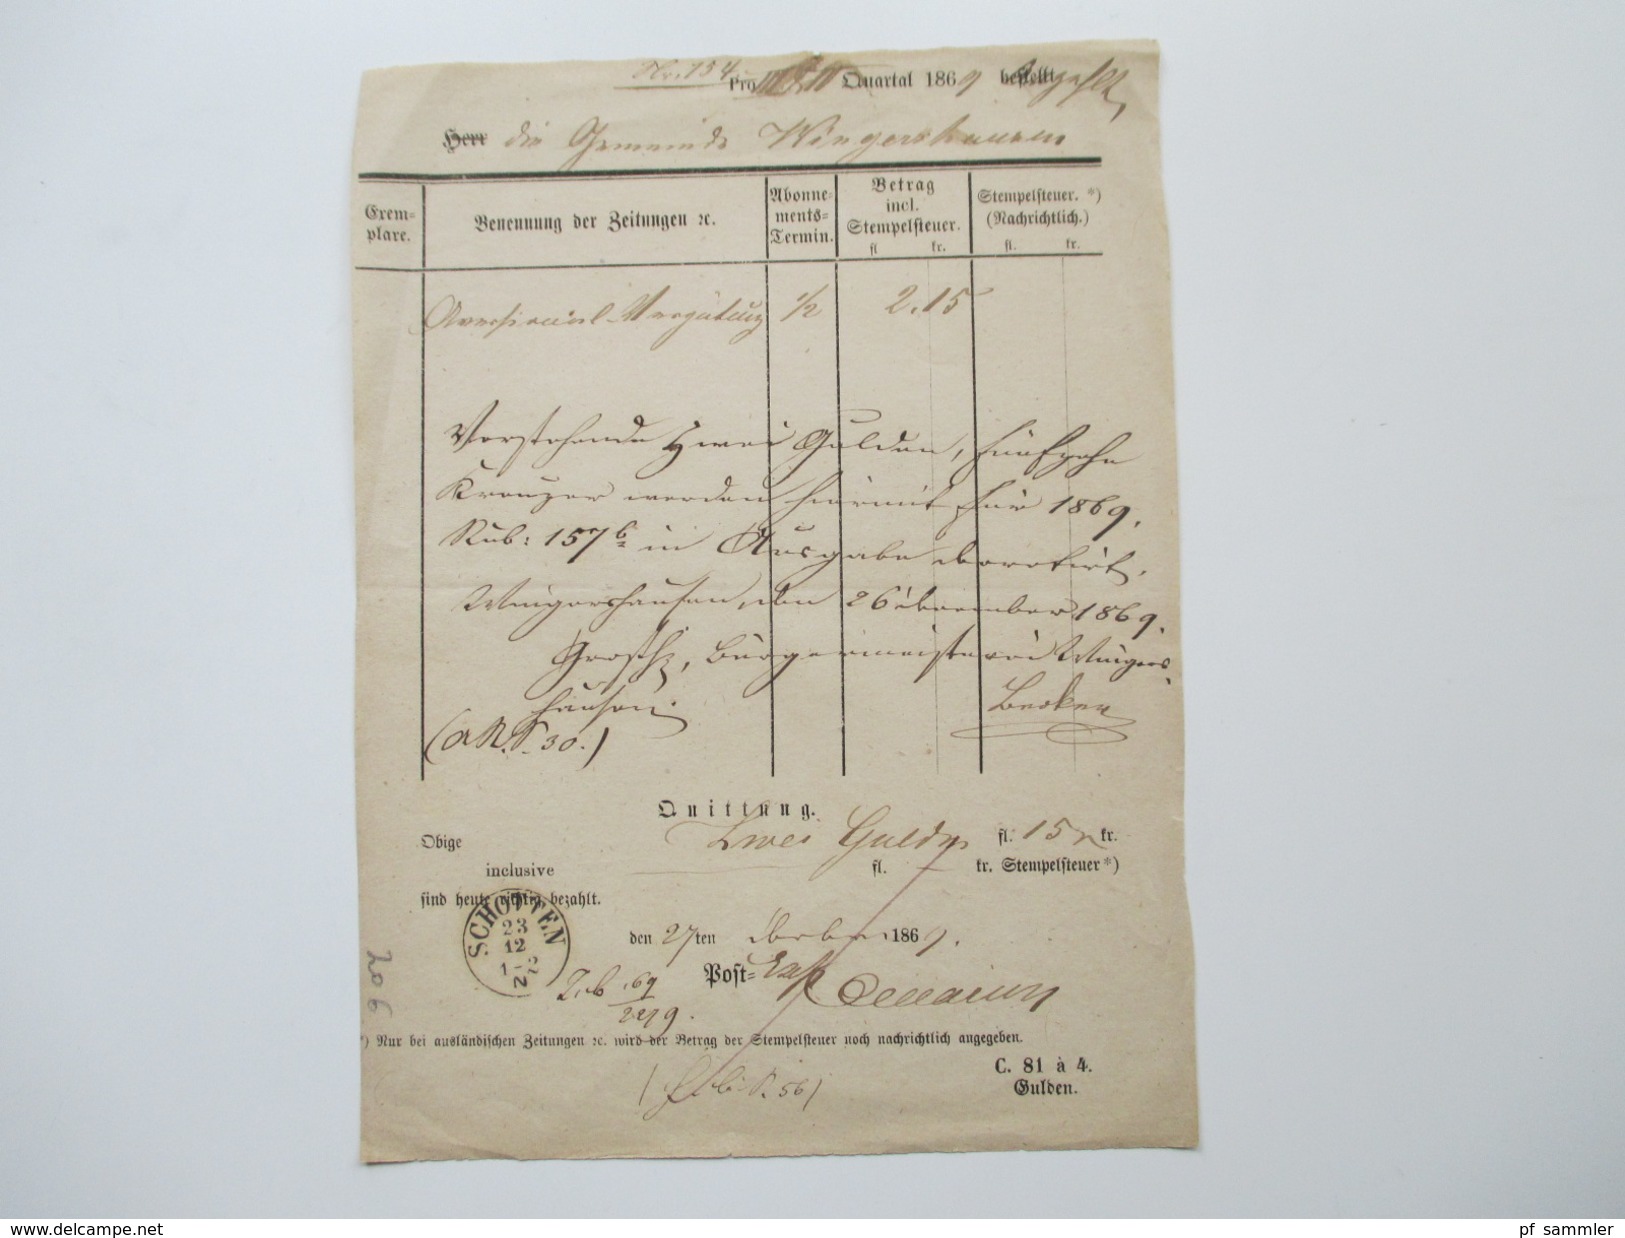 Nr. 154.
Pro Quartal 1869 bestellt
Herr die Gemeinde Wingershausen
Exemplare.
Benennung der Zeitungen ꝛc.
Abonnements-Termin.
Betrag incl. Stempelsteuer.
fl kr.
Stempelsteuer. *)
(Nachrichtlich.)
fl. kr.
Aversional-Vergütung 1/2 2.15
Vorstehende Zwei Gulden, fünfzehn
Kreuzer werden hiermit für 1869.
Rub: 157 b in Ausgabe decretirt.
Wingershausen, den 26 December 1869.
Großhz. Bürgermeisterei Wingers
hausen.
Becker
Quittung.
Obige Zwei Gulden fl. 15 kr.
inclusive fl. kr. Stempelsteuer *)
sind heute richtig bezahlt.
SCHOTTEN
23
12
1-2
den 27ten 1869.
Post-
206
*) Nur bei ausländischen Zeitungen ꝛc. wird der Betrag der Stempelsteuer noch nachrichtlich angegeben.
C. 81 à 4.
Gulden.
pf sammler
www.delcampe.net